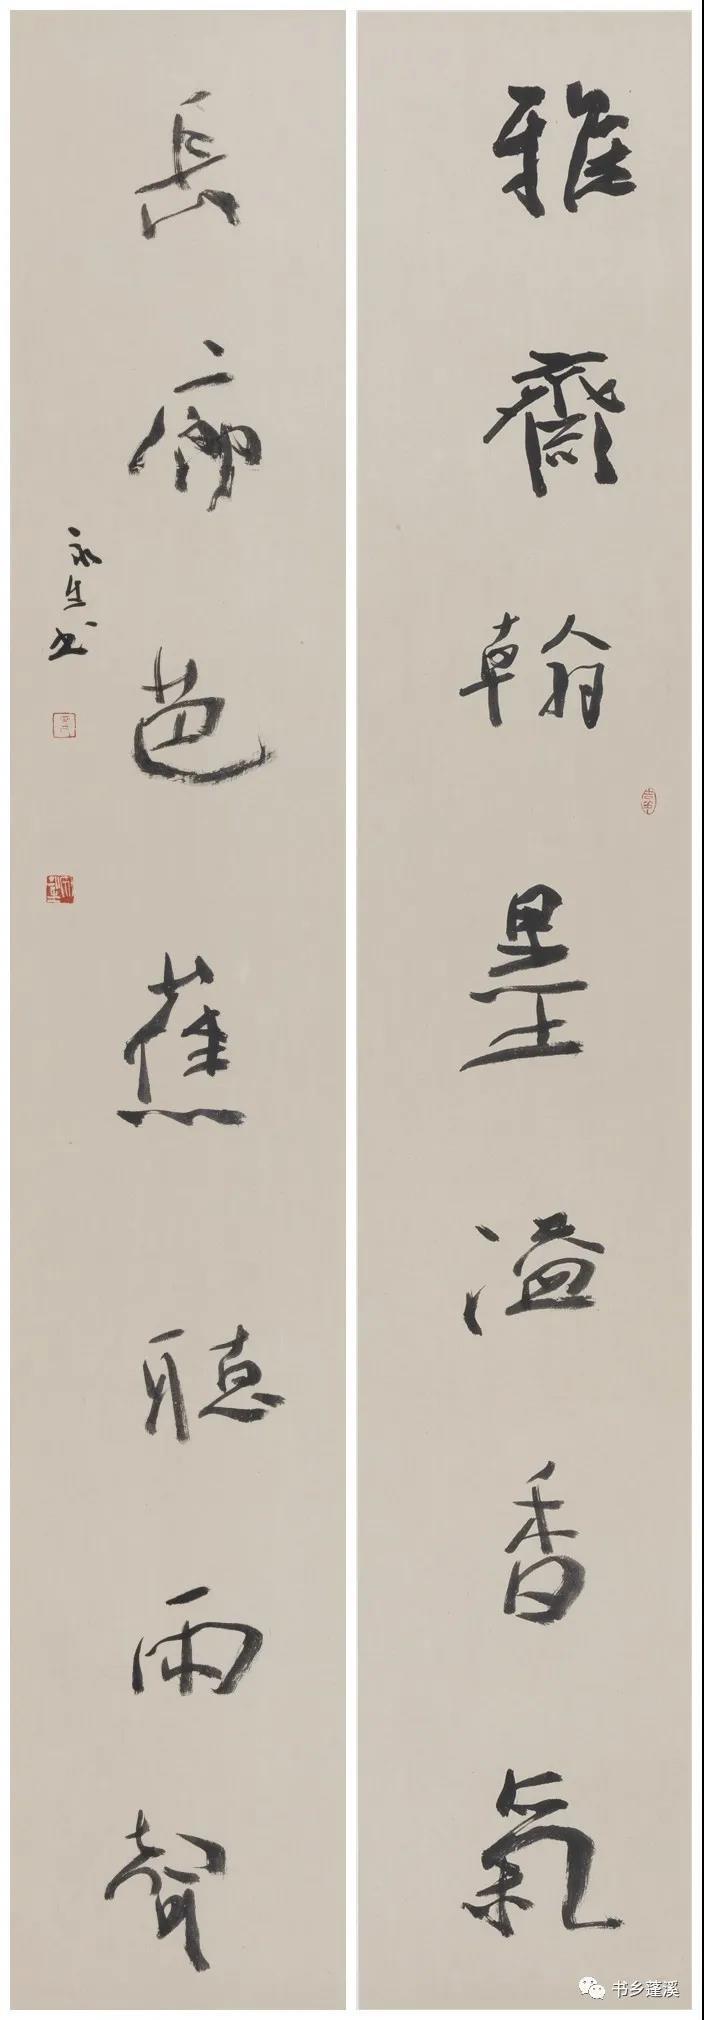 雅齋翰墨溢香氣
長廊芭蕉聽雨聲
永生书
书乡蓬溪